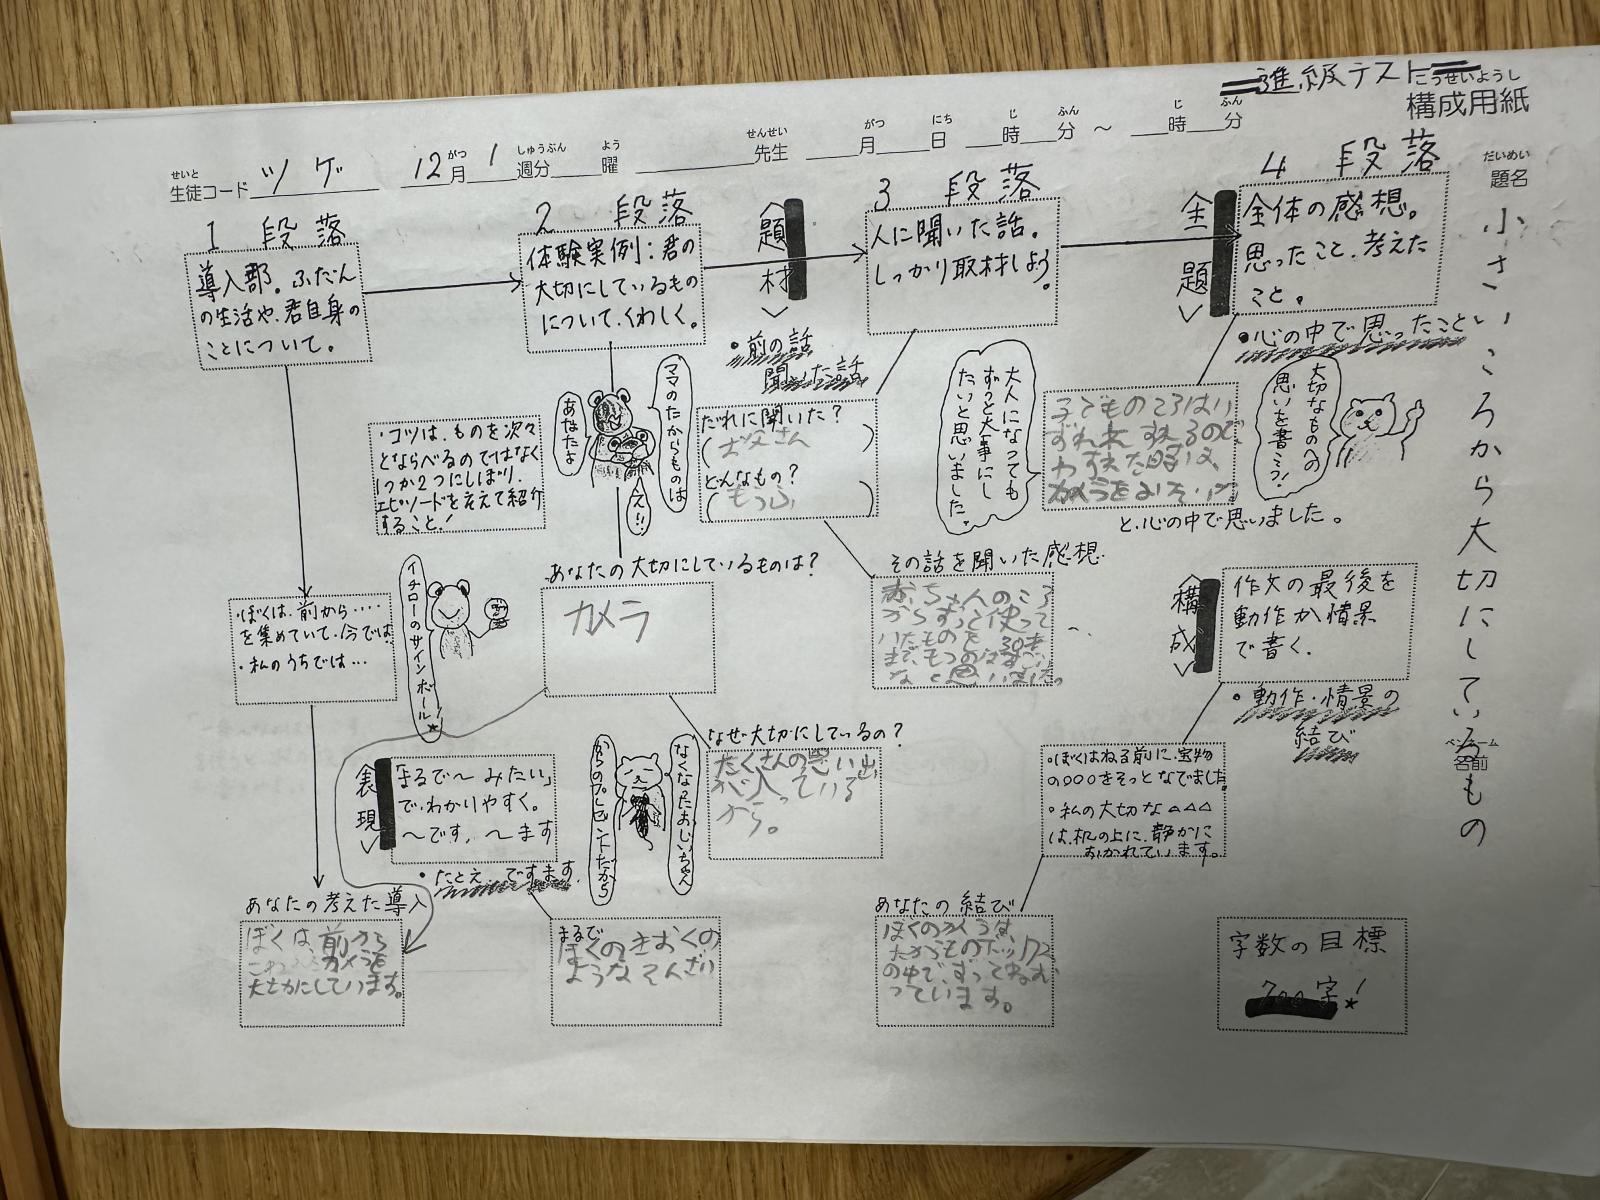 進級テスト
こうせいようし
構成用紙
せいと
生徒コード ツゲ
12月 1週分 曜
がつ しゅうぶん よう
せんせい
先生
がつ にち じ ふん じ ふん
月 日 時 分 ～ 時 分
だいめい
題名
小さいころから大切にしているもの
ペンネーム
名前
1 段落
導入部。ふだん
の生活や、君自身の
ことについて。
・ぼくは、前から····
を集めていて、今では
・私のうちでは…
イチローのサインボール!
あなたの考えた導入
ぼくは、前から
カメラを
大切にしています。
2 段落
体験実例：君の
大切にしているもの
について、くわしく。
・コツは、ものを次々
とならべるのではなく
1つか2つにしぼり、
エピソードをそえて紹介
すること!
ママのたからものは
あなたよ
え!!
あなたの大切にしているものは?
カメラ
なぜ大切にしているの?
たくさんの思い出
が入っている
から。
なくなったおじいちゃん
からのプレゼントだから
表現
「まるで～みたい」
で、わかりやすく。
～です，～ます
・たとえ ですます
まるで
ぼくのきおくの
ようなそんざい
題材
・前の話
聞いた話
3 段落
人に聞いた話。
しっかり取材しよう。
だれに聞いた?
(お父さん)
どんなもの?
(もうふ)
その話を聞いた感想
赤ちゃんのころ
からずっと使って
いたものを30才
まで、もつのはすごい
なと思いました。
主題
4 段落
全体の感想。
思ったこと、考えた
こと。
・心の中で思ったこと
大切なものへの
思いを書こう!
大人になっても
ずっと大事にし
たいと思いました。
子どものころはい
ずれ
わすれた時は、
カメラを
と、心の中で思いました。
構成
作文の最後を
動作か情景
で書く。
・動作・情景の
結び
・ぼくはねる前に、宝物
の○○○をそっとなでました
・私の大切な△△△
は、机の上に、静かに
おかれています。
あなたの結び
ぼくのカメラは、
たからものボックス
の中で、ずっとねむ
っています。
字数の目標
700字!